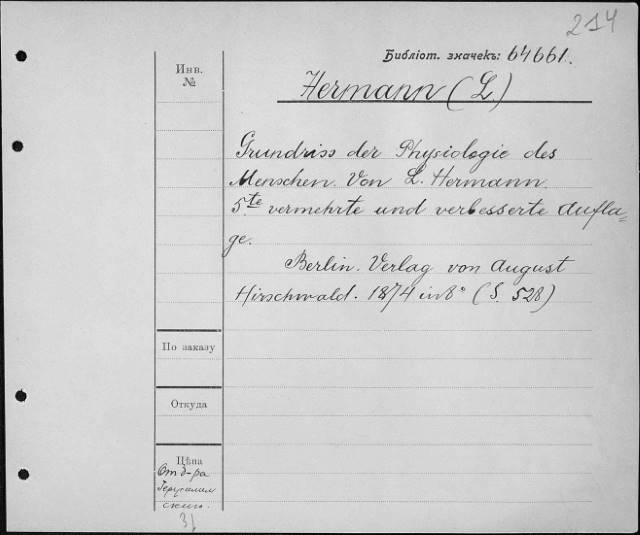 214
Библiот. значекъ: 64661.
Инв.
№
Hermann (L.)
Grundriss der Physiologie des
Menschen. Von L. Hermann.
5.te vermehrte und verbesserte Aufla=
ge.
Berlin. Verlag von August
Hirschwald. 1874 in 8° (S. 528)
По заказу
Откуда
Цѣна
От д-ра
Іерусалим
скаго.